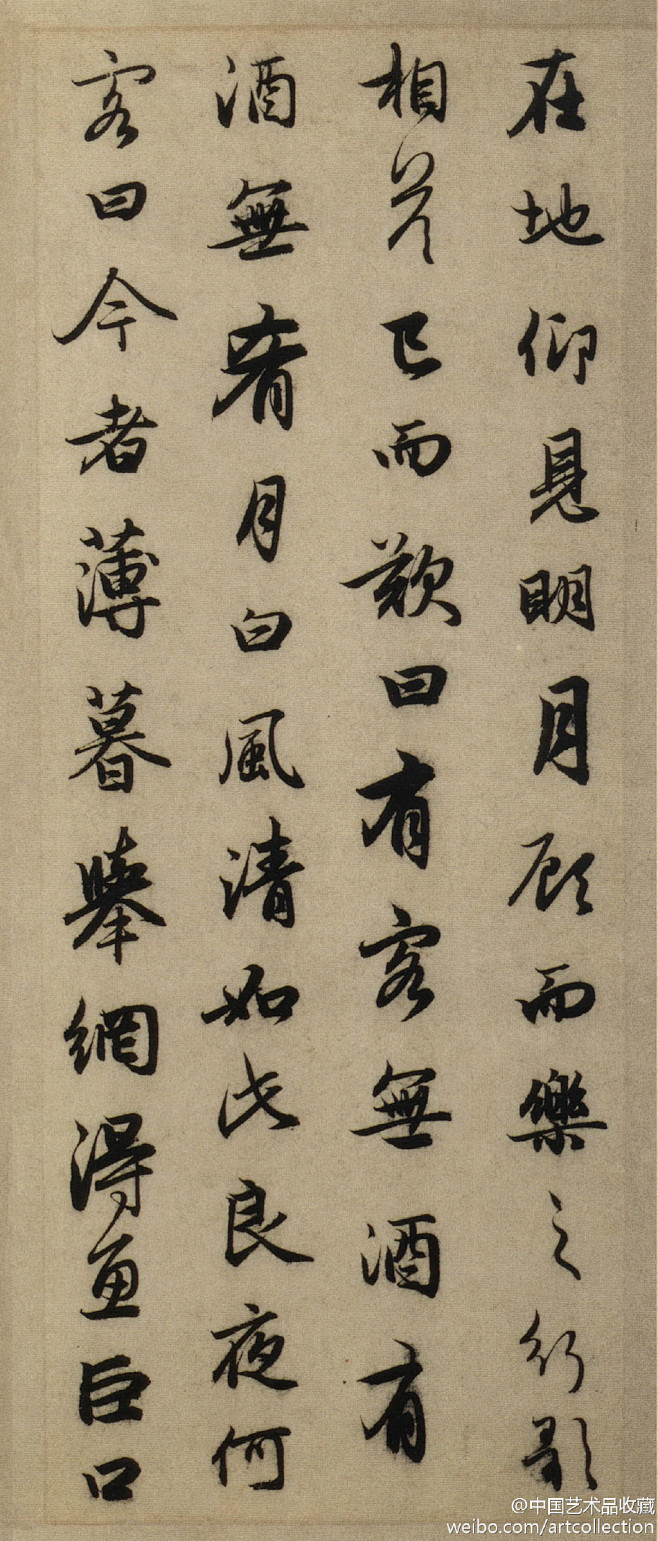 在地仰見明月顧而樂之行歌
相答已而歎曰有客無酒有
酒無肴月白風清如此良夜何
客曰今者薄暮舉網得魚巨口
@中国艺术品收藏
weibo.com/artcollection